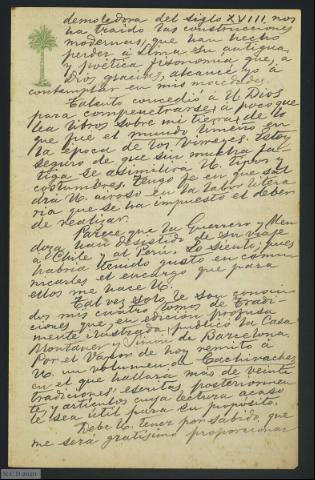 demoledora del siglo XVIII, nos
ha traido las construcciones
modernas, que han hecho
perder á Lima su antigua
y poética fisonomia que, a
Dios gracias, alcancé yo á
contemplar en mis mocedades.
Talento concedió á U. Dios
para compenetrarse, á poco que
lea libros sobre mi tierra, de lo
que fué el mundo limeño en
la época de los Virreyes. Estoy
seguro de que sin mucha fa-
tiga se asimilará U. tipos y
costumbres. Tengo fe en que sal
drá U. airoso en la labor litera
ria que se ha impuesto el deber
de realizar.
Parece que la Guerrero y Men
doza han desistido de su viaje
á Chile y al Perú. Lo siento; pues
habria tenido gusto en comu
nicarles el encargo que para
ellos me hace U.
Tal vez solo le son conoci-
dos mis cuatro tomos de Tradi-
ciones que, en edición profusa
mente ilustrada, publicó la Casa
Montaner y Simon de Barcelona.
Por el vapor de hoy remito á
U. un volumen, de Cachivaches
en el que hallará más de veinte
tradiciones escritas posteriormen
te, y articulos cuya lectura acaso
le sea útil para su propósito.
Debe U. tener por sabido que
me será gratisimo proporcionar
N.C.D 2010